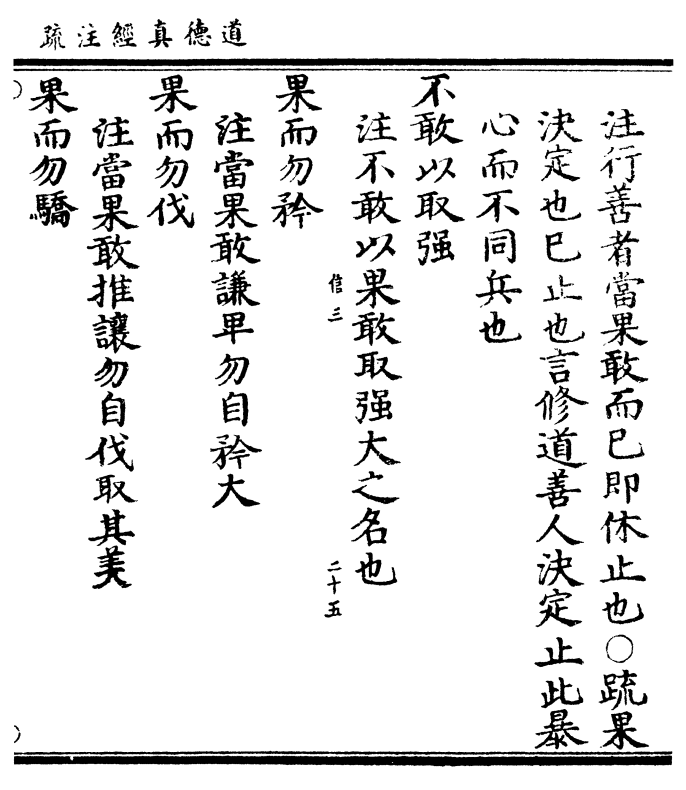 道德真經注疏
注行善者當果敢而已即休止也○疏果
決定也已止也言修道善人決定止此暴
心而不同兵也
不敢以取强
注不敢以果敢取强大之名也
信三
二十五
果而勿矜
注當果敢謙卑勿自矜大
果而勿伐
注當果敢推讓勿自伐取其美
果而勿驕